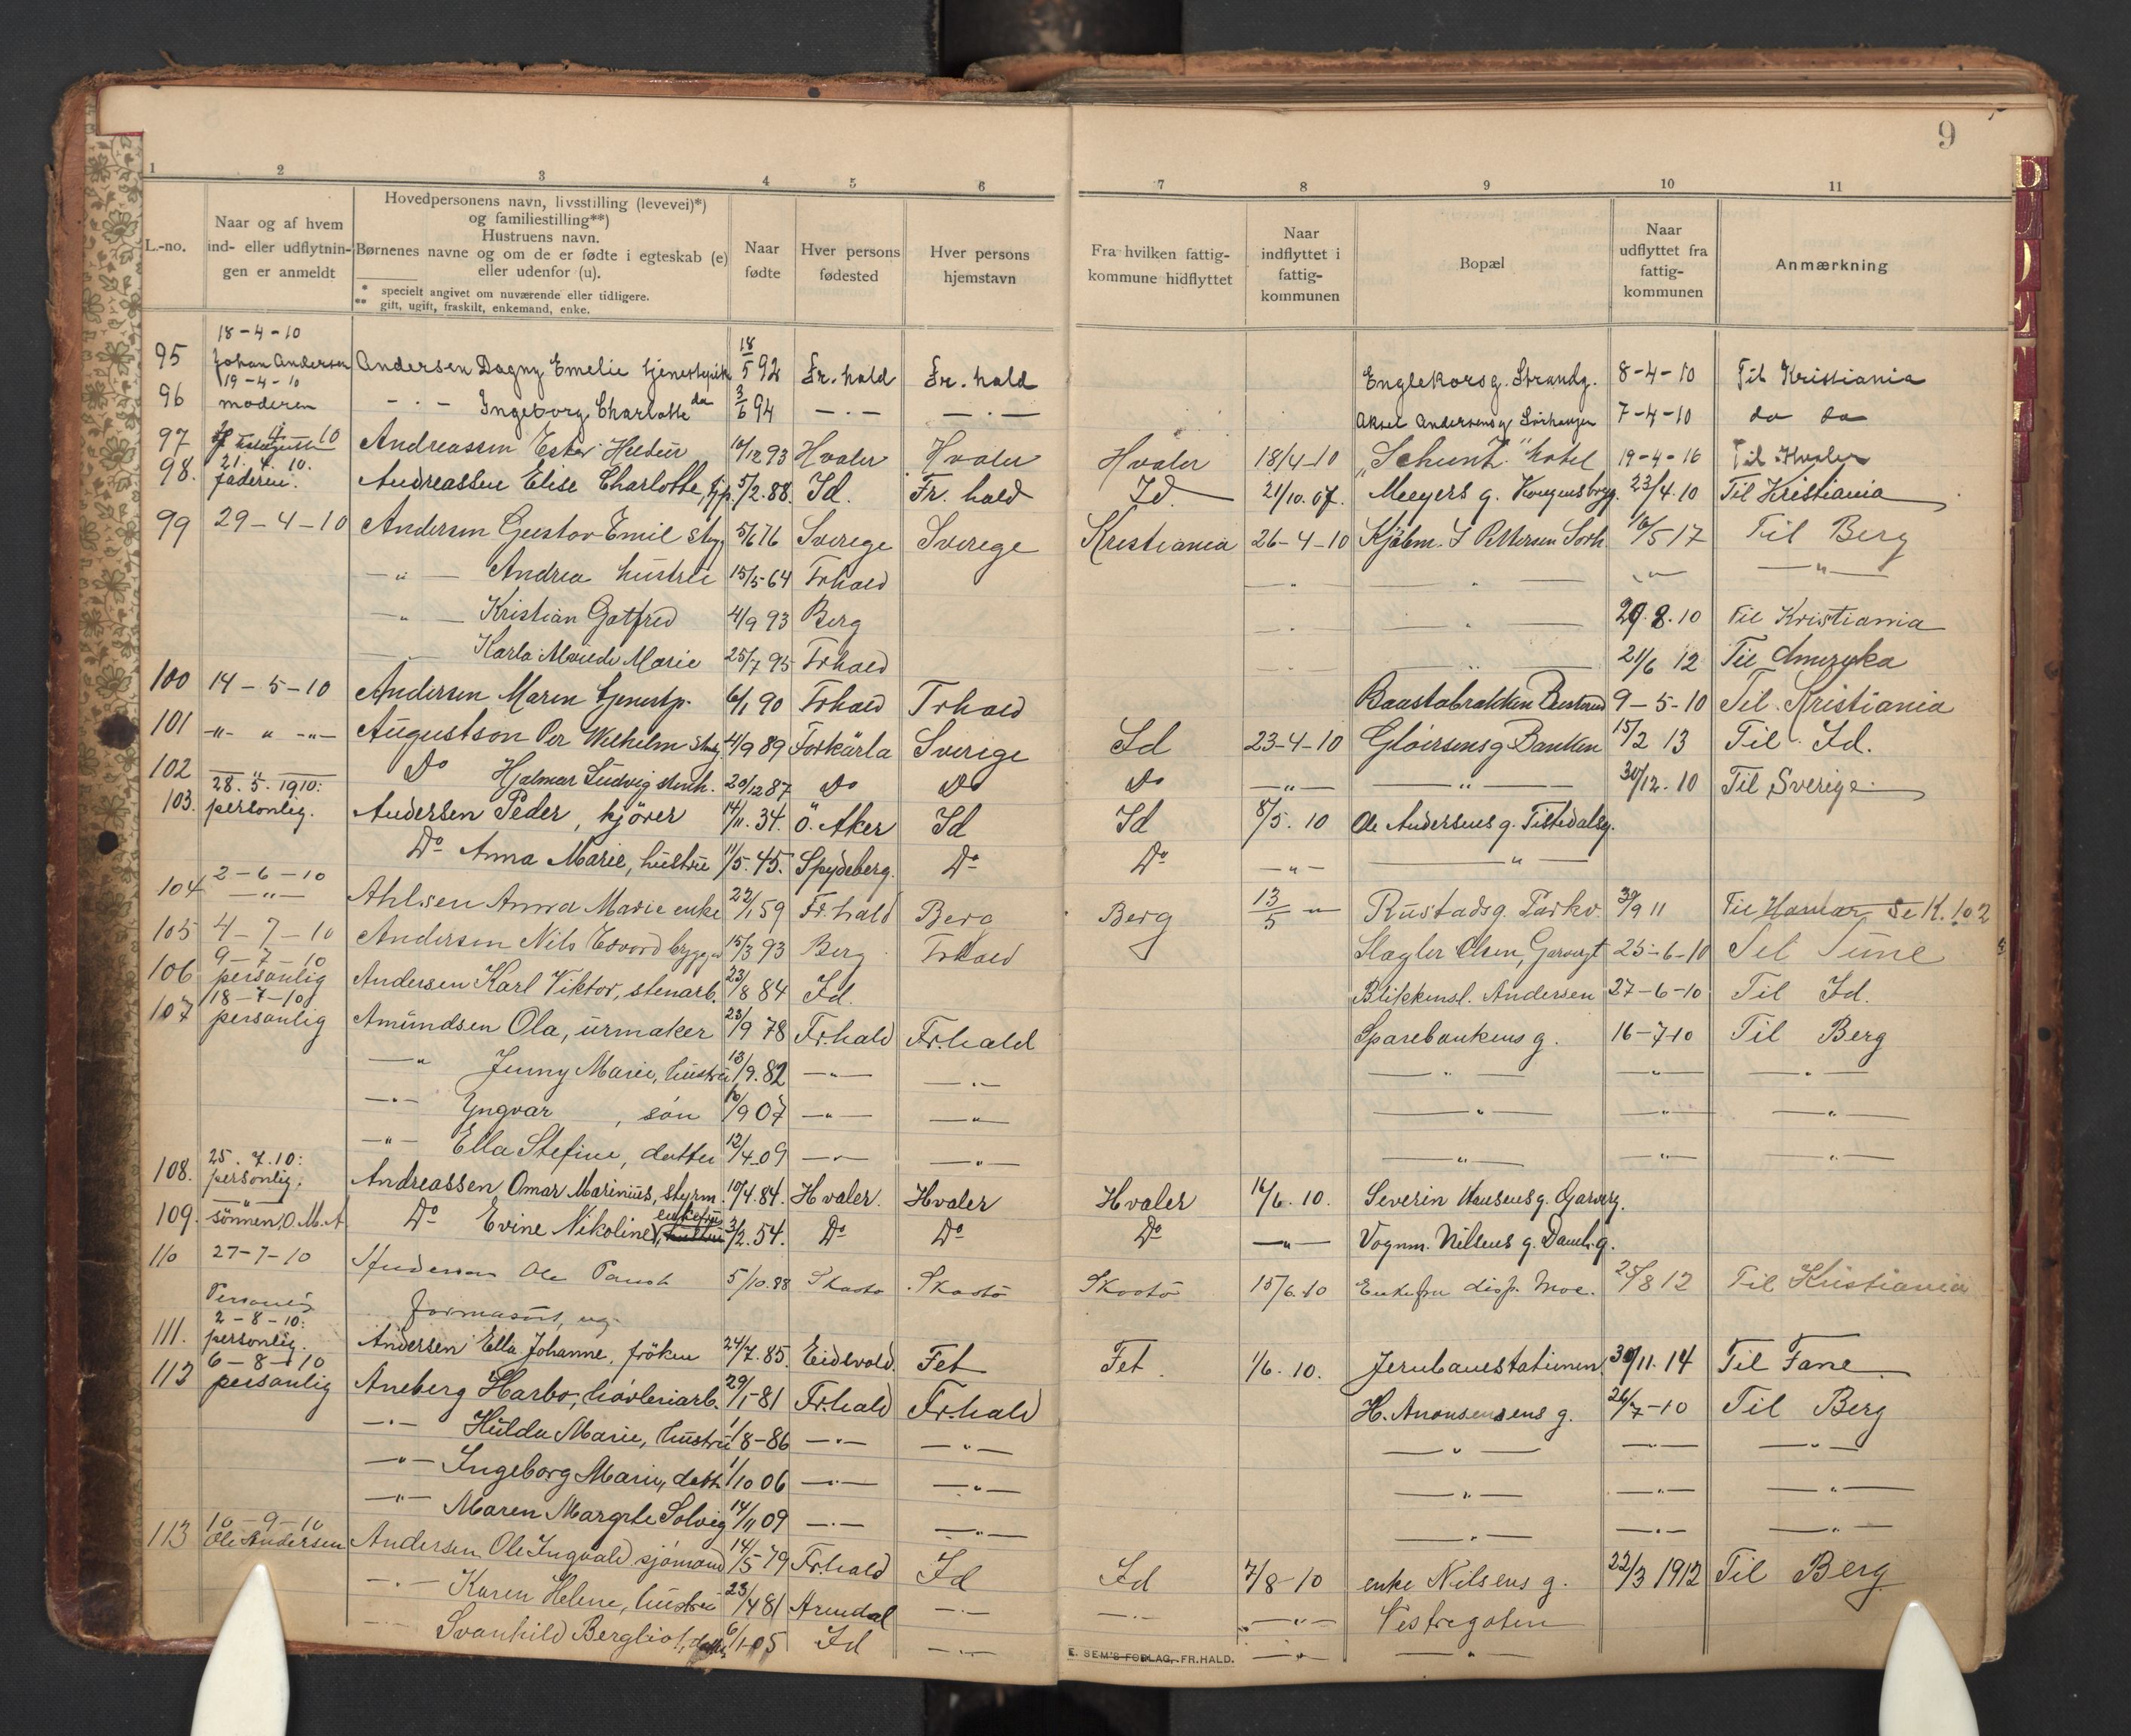 9
1 2 3 4 5 6 7 8 9 10 11
L.-no.
Naar og af hvem
ind- eller udflytnin-
gen er anmeldt
Hovedpersonens navn, livsstilling (levevei)*)
og familiestilling**)
Hustruens navn.
Børnenes navne og om de er fødte i egteskab (e)
eller udenfor (u).
* specielt angivet om nuværende eller tidligere.
** gift, ugift, fraskilt, enkemand, enke.
Naar
fødte
Hver persons
fødested
Hver persons
hjemstavn
Fra hvilken fattig-
kommune hidflyttet
Naar
indflyttet i
fattig-
kommunen
Bopæl
Naar
udflyttet fra
fattig-
kommunen
Anmærkning
18-4-10
95 Johan Andersen Andersen Dagny Emelie 18/5 92 Fr.hald Fr.hald Englekorsg. Strandg. 8-4-10 Til Kristiania
19-4-10
96 moderen -"- Ingeborg Charlotte do 3/6 94 -"- -"- Aksel Andersens g 7-4-10 do do
97 Andreassen Ester 10/12 93 Hvaler Hvaler Hvaler 18/4-10 "Schunk" hotel 19-4-16 Til Hvaler
21. 4. 10.
98. faderen. Andreassen Elise Charlotte, tjp. 5/2.88. Id. Fr.hald Id 21/10.07. Meyers g. Kongensbryg. 23/4.10 Til Kristiania
99 29-4-10 Andersen Gustav Emil 5/6 76 Sverige Sverige Kristiania 26-4-10 Pettersen 16/5 17 Til Berg
-"- Andrea hustru 15/5-64 Frhald -"- -"- -"- -"-
-"- Kristian Gotfred 4/9 93 Berg -"- -"- 29.8.10 Til Kristiania
-"- Karla Marie 25/7 95 Frhald -"- -"- 21/6 12 Til Amerika
100 14-5-10 Andersen Maren tjenestp. 6/1 90 Frhald Frhald 9-5-10 Til Kristiania
101 -"- " -"- Augustson Per Wilhelm 4/9 89 Torkärla Sverige Id 23-4-10 Banken 15/2 13 Til Id.
102 -"- Do Hjalmar Ludvig stenh. 20/12 87 Do Do Do -"- -"- 30/12.10 Til Sverige
28. 5. 1910:
103. personlig. Andersen Peder, kjörer 14/11.34. Ö. Aker Id Id 8/5.10 Ole Andersens g. Tistedalsg.
Do Anna Marie, hustru 11/5.45. Spydeberg. Do Do -"- -"-
2-6-10
104 -"- Ahlsen Anna Marie enke 22/1 59 Fr.hald Berg Berg 13/5 -"- Rustadsg. Parkv. 30/9 11 Til Hamar Se K.102
105 4-7-10 Andersen Nils Edvard 15/3 93 Berg Frhald Slagter Olsen, 25-6-10 Til Tune
9-7-10
106 personlig Andersen Karl Viktor, stenarb. 23/8 84 Id. Blikkensl. Andersen 27-6-10 Til Id.
18-7-10
107 personlig Amundsen Ola, urmaker 23/9 78 Fr.hald Fr.hald Sparebankens g. 16-7-10 Til Berg
-"- Jenny Marie, hustru 13/9.82 -"- -"- -"- -"- -"-
-"- Yngvar, sön 16/9 07 -"- -"- -"- -"- -"-
-"- Ella Stefine, datter 12/4-09 -"- -"- -"- -"- -"-
25. 7. 10:
108. personlig. Andreassen Omar Marinius, styrm. 10/4.84. Hvaler. Hvaler Hvaler 16/6.10. Severin Hansens g. Garverg.
-"-
109. sönnen, O.M.A. Do Evine Nikoline, enkefru hustru 3/2.54. Do Do Do -"- Vognm. Nilsens g. Damh.g.
110 27-7-10 Andersen Ole 5/10.88 Skaatö Skaatö Skaatö 15/6.10 Enkefru disp. Moe. 25/8 12 Til Kristiania
Personlig farmaceut, ug.
2-8-10:
111. personlig. Andersen Ella Johanne, fröken 24/7.85. Eidsvold. Fet Fet. 1/6.10. Jernbanestationen. 30/11.14 Til Fane
6-8-10
112 personlig Aneberg Harbo, hövleriarb. 29/1-81 Fr.hald Fr.hald H. Aronsensens g. 26/7-10 Til Berg
-"- Hulda Marie, hustru 1/8-86 -"- -"- -"- -"- -"-
-"- Ingeborg Marie, datt. 1/10 06 -"- -"- -"- -"- -"-
-"- Maren Margrete Solveig 14/11 09 -"- -"- -"- -"- -"-
10-9-10
113 Ole Andersen Andersen Ole Ingvald sjömand 14/5 79 Fr.hald Id Id 7/8-10 enke Nilsens g. 22/3 1912 Til Berg
-"- Karen Helene, hustru 23/4 81 Arendal -"- -"- -"- Vestregaten
-"- Svanhild Bergliot, datter 6/1-05 Id -"- -"- -"-
E. SEM'S FORLAG, FR.HALD.